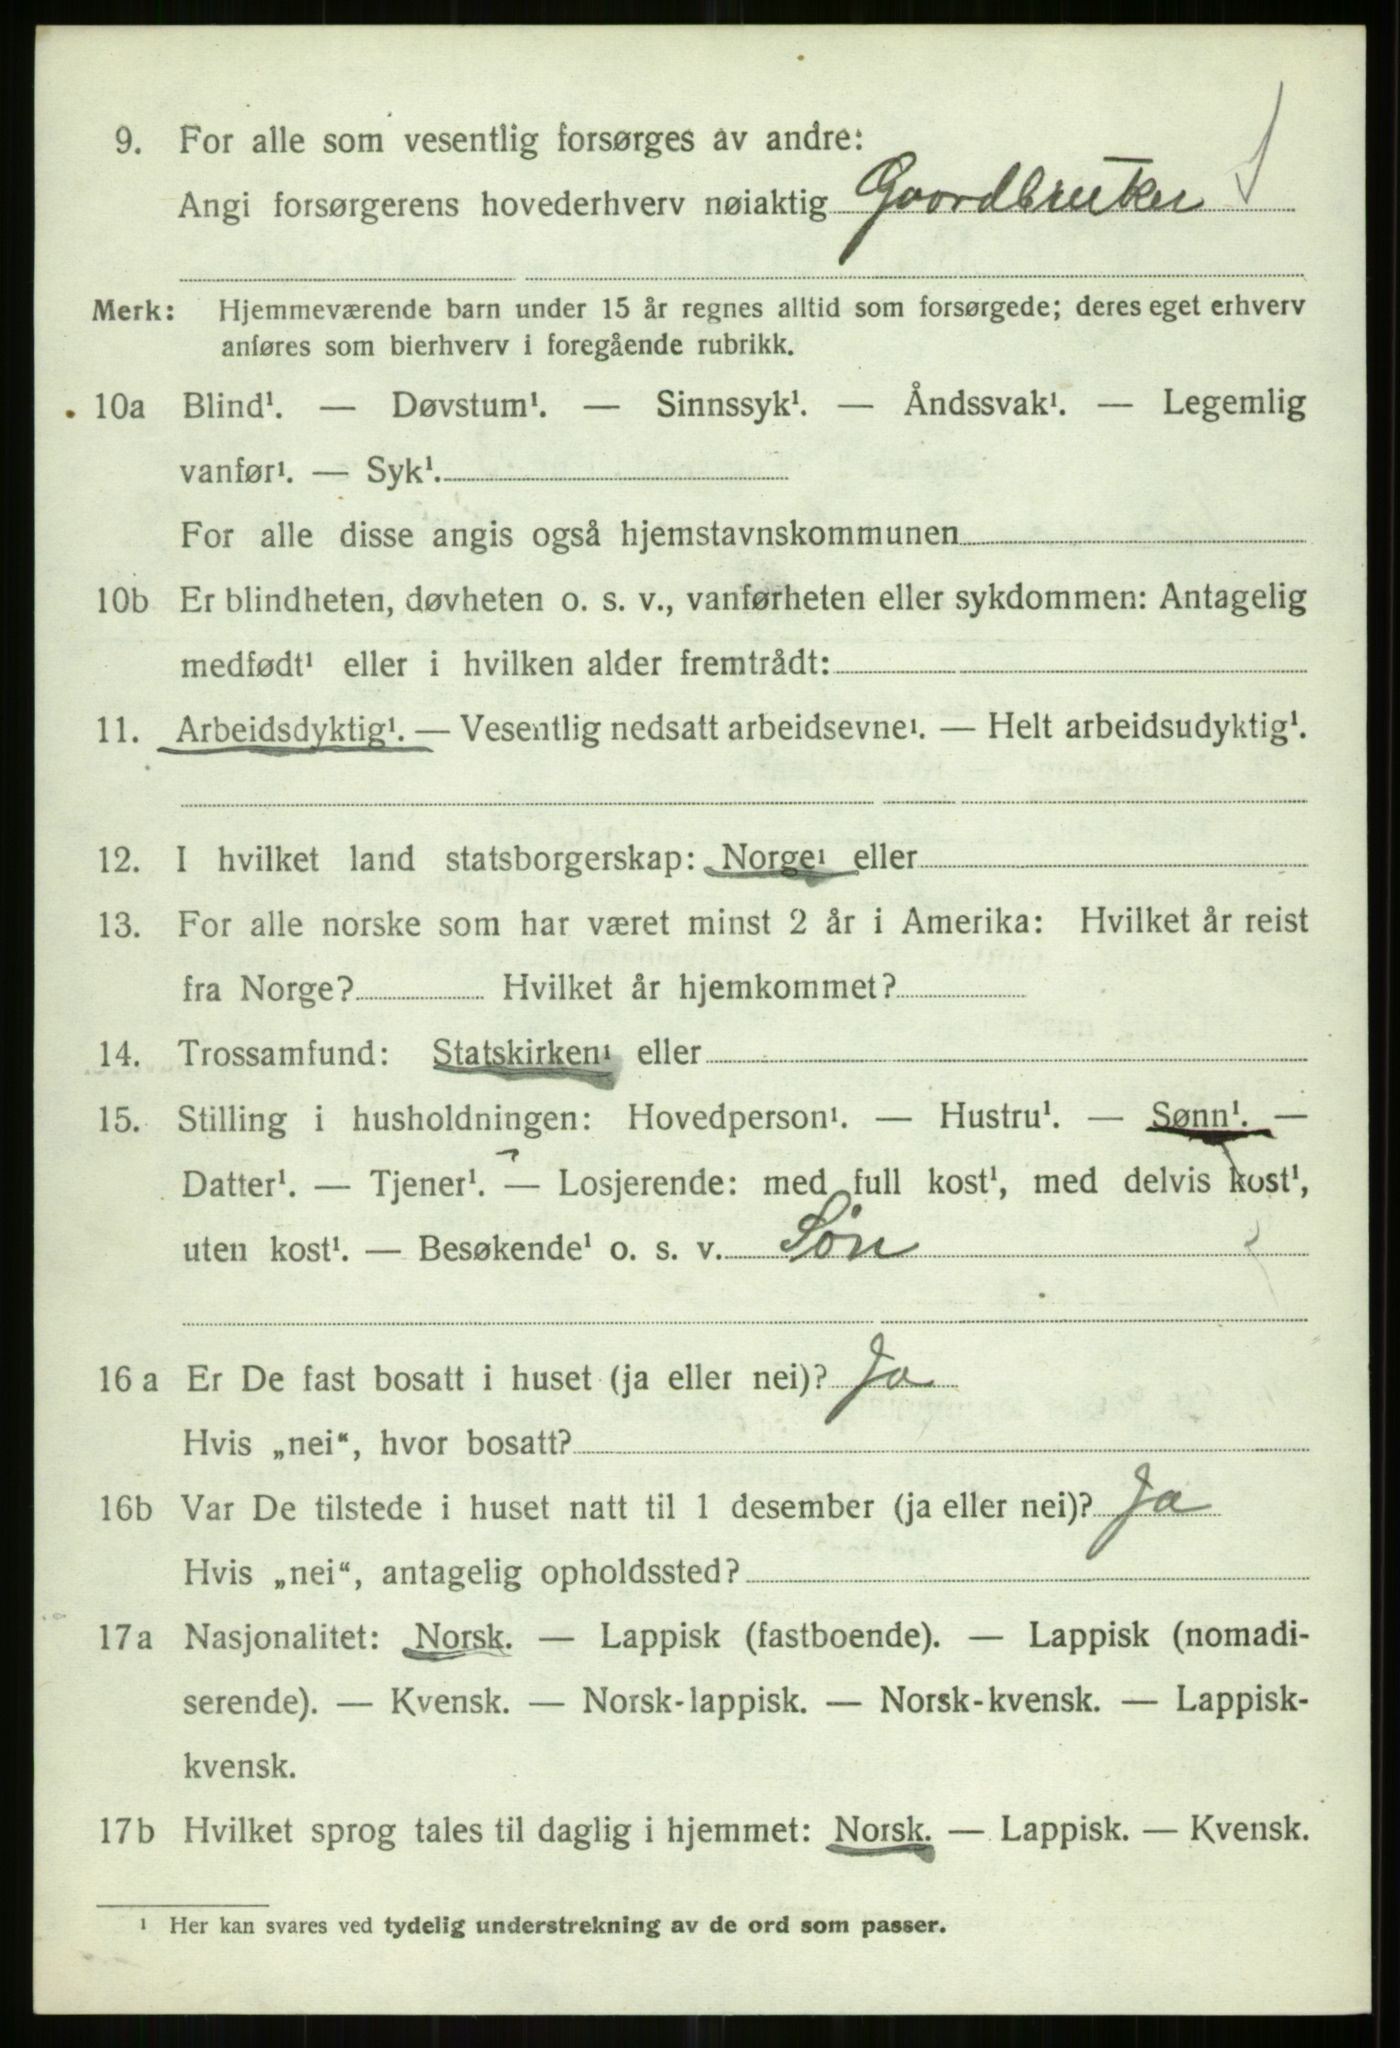 9. For alle som vesentlig forsørges av andre:
Angi forsørgerens hovederhverv nøiaktig Gaardbruker
Merk: Hjemmeværende barn under 15 år regnes alltid som forsørgede; deres eget erhverv
anføres som bierhverv i foregående rubrikk.
10a Blind¹. — Døvstum¹. — Sinnssyk¹. — Åndssvak¹. — Legemlig
vanfør¹. — Syk¹.
For alle disse angis også hjemstavnskommunen
10b Er blindheten, døvheten o. s. v., vanførheten eller sykdommen: Antagelig
medfødt¹ eller i hvilken alder fremtrådt:
11. Arbeidsdyktig¹. — Vesentlig nedsatt arbeidsevne¹. — Helt arbeidsudyktig¹.
12. I hvilket land statsborgerskap: Norge¹ eller
13. For alle norske som har været minst 2 år i Amerika: Hvilket år reist
fra Norge? Hvilket år hjemkommet?
14. Trossamfund: Statskirken¹ eller
15. Stilling i husholdningen: Hovedperson¹. — Hustru¹. — Sønn¹. —
Datter¹. — Tjener¹. — Losjerende: med full kost¹, med delvis kost¹,
uten kost¹. — Besøkende¹ o. s. v. Søn
16 a Er De fast bosatt i huset (ja eller nei)? Ja
Hvis „nei“, hvor bosatt?
16b Var De tilstede i huset natt til 1 desember (ja eller nei)? Ja
Hvis „nei“, antagelig opholdssted?
17a Nasjonalitet: Norsk. — Lappisk (fastboende). — Lappisk (nomadi-
serende). — Kvensk. — Norsk-lappisk. — Norsk-kvensk. — Lappisk-
kvensk.
17b Hvilket sprog tales til daglig i hjemmet: Norsk. — Lappisk. — Kvensk.
¹ Her kan svares ved tydelig understrekning av de ord som passer.